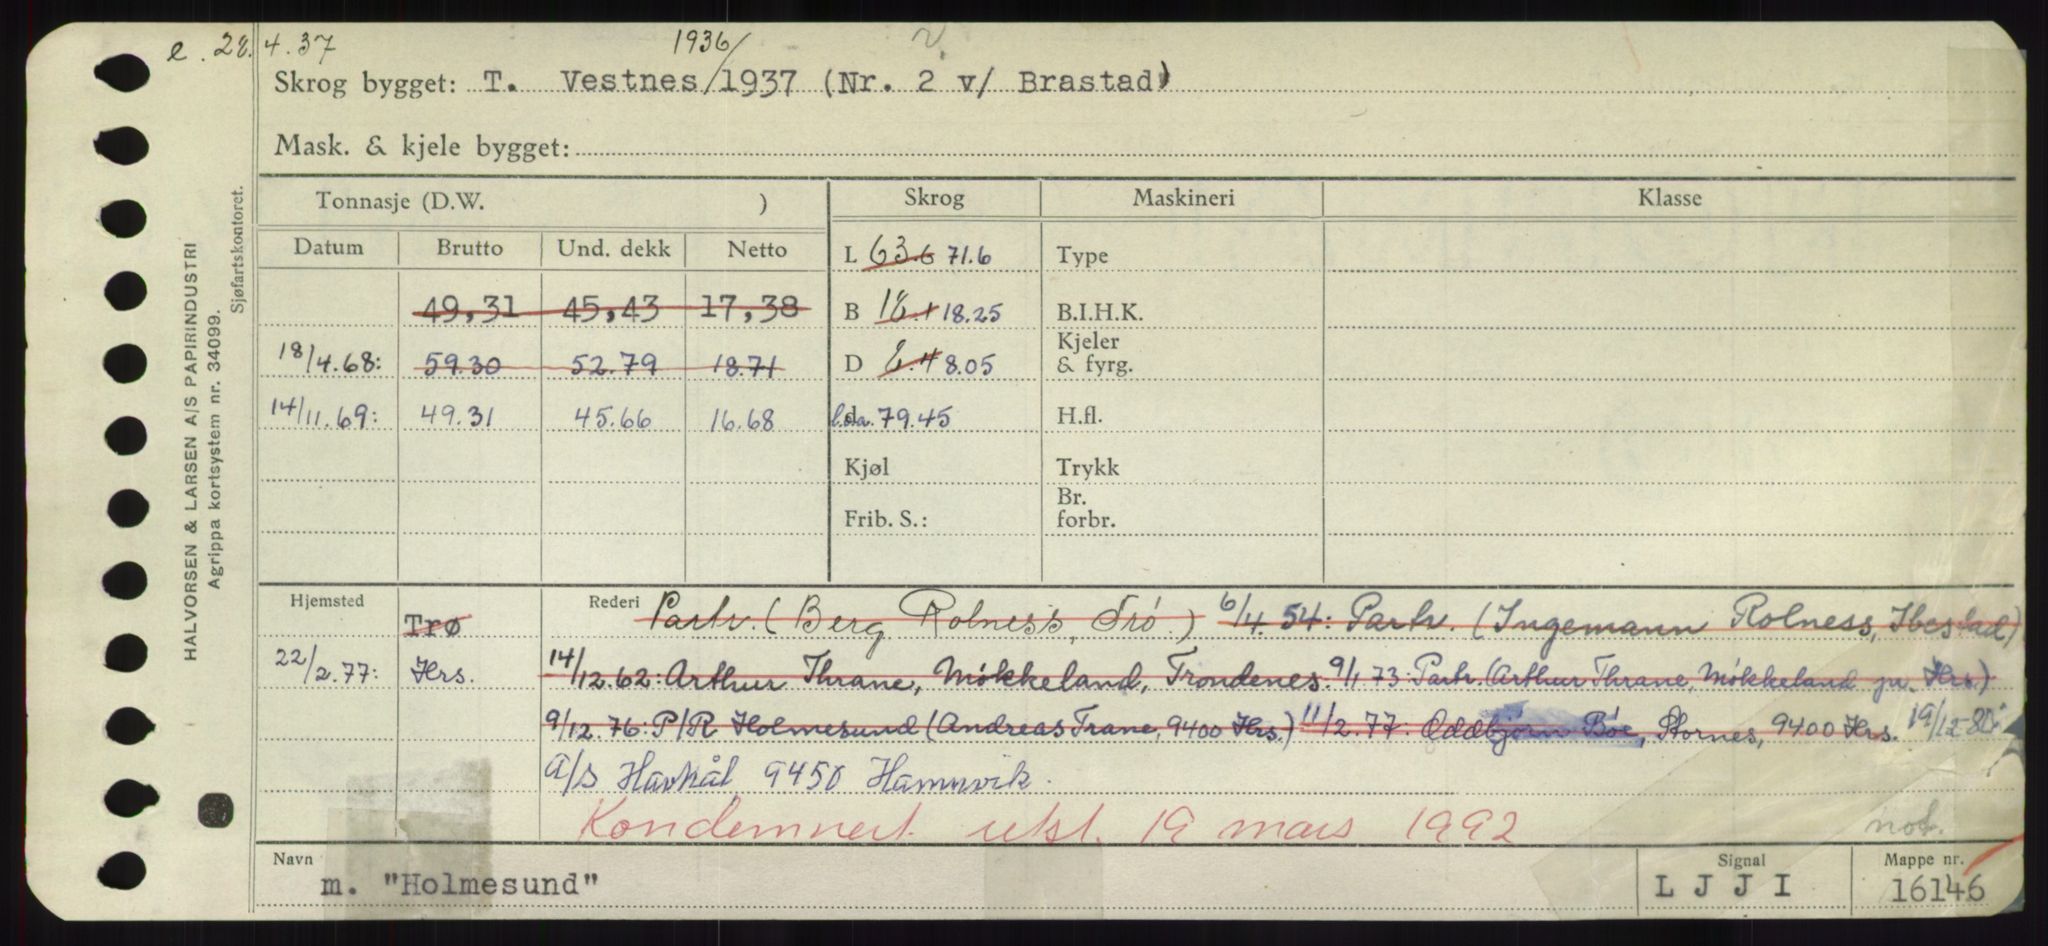 e. 28.4.37
1936/
Skrog bygget: T. Vestnes/1937 (Nr. 2 v/ Brastad)
Mask. & kjele bygget:
Tonnasje (D.W. )
Skrog
Maskineri
Klasse
Datum Brutto Und. dekk Netto
L 63.6 71.6
Type
49,31 45,43 17,38
B 18.1 18.25
B.I.H.K.
18/4.68: 59.30 52.79 18.71
D 8.4 8.05
Kjeler
& fyrg.
14/11.69: 49.31 45.66 16.68
l.o.a. 79.45
H.fl.
Kjøl
Trykk
Br.
forbr.
Frib. S.:
Hjemsted
Trø
Rederi Partr. (Berg Rolness, Trø.) 6/4.54: Partr. (Ingemann Rolness, Ibestad)
22/2.77: Hrs. 14/12.62: Arthur Thrane, Møkkeland, Trondenes. 9/1 73: Partr. (Arthur Thrane, Møkkeland pr. Hrs.)
9/12.76: P/R Holmesund (Andreas Trane, 9400 Hrs.) 11/2.77: Oddbjørn Bøe, Stornes, 9400 Hrs. 19/12-80:
A/S Havkål 9450 Hamnvik.
Kondemnert. utsl. 19 mars 1992
not.
Navn
m. "Holmesund"
Signal
L J J I
Mappe nr.
16146
HALVORSEN & LARSEN A/S PAPIRINDUSTRI
Agrippa kortsystem nr. 34099.
Sjøfartskontoret.